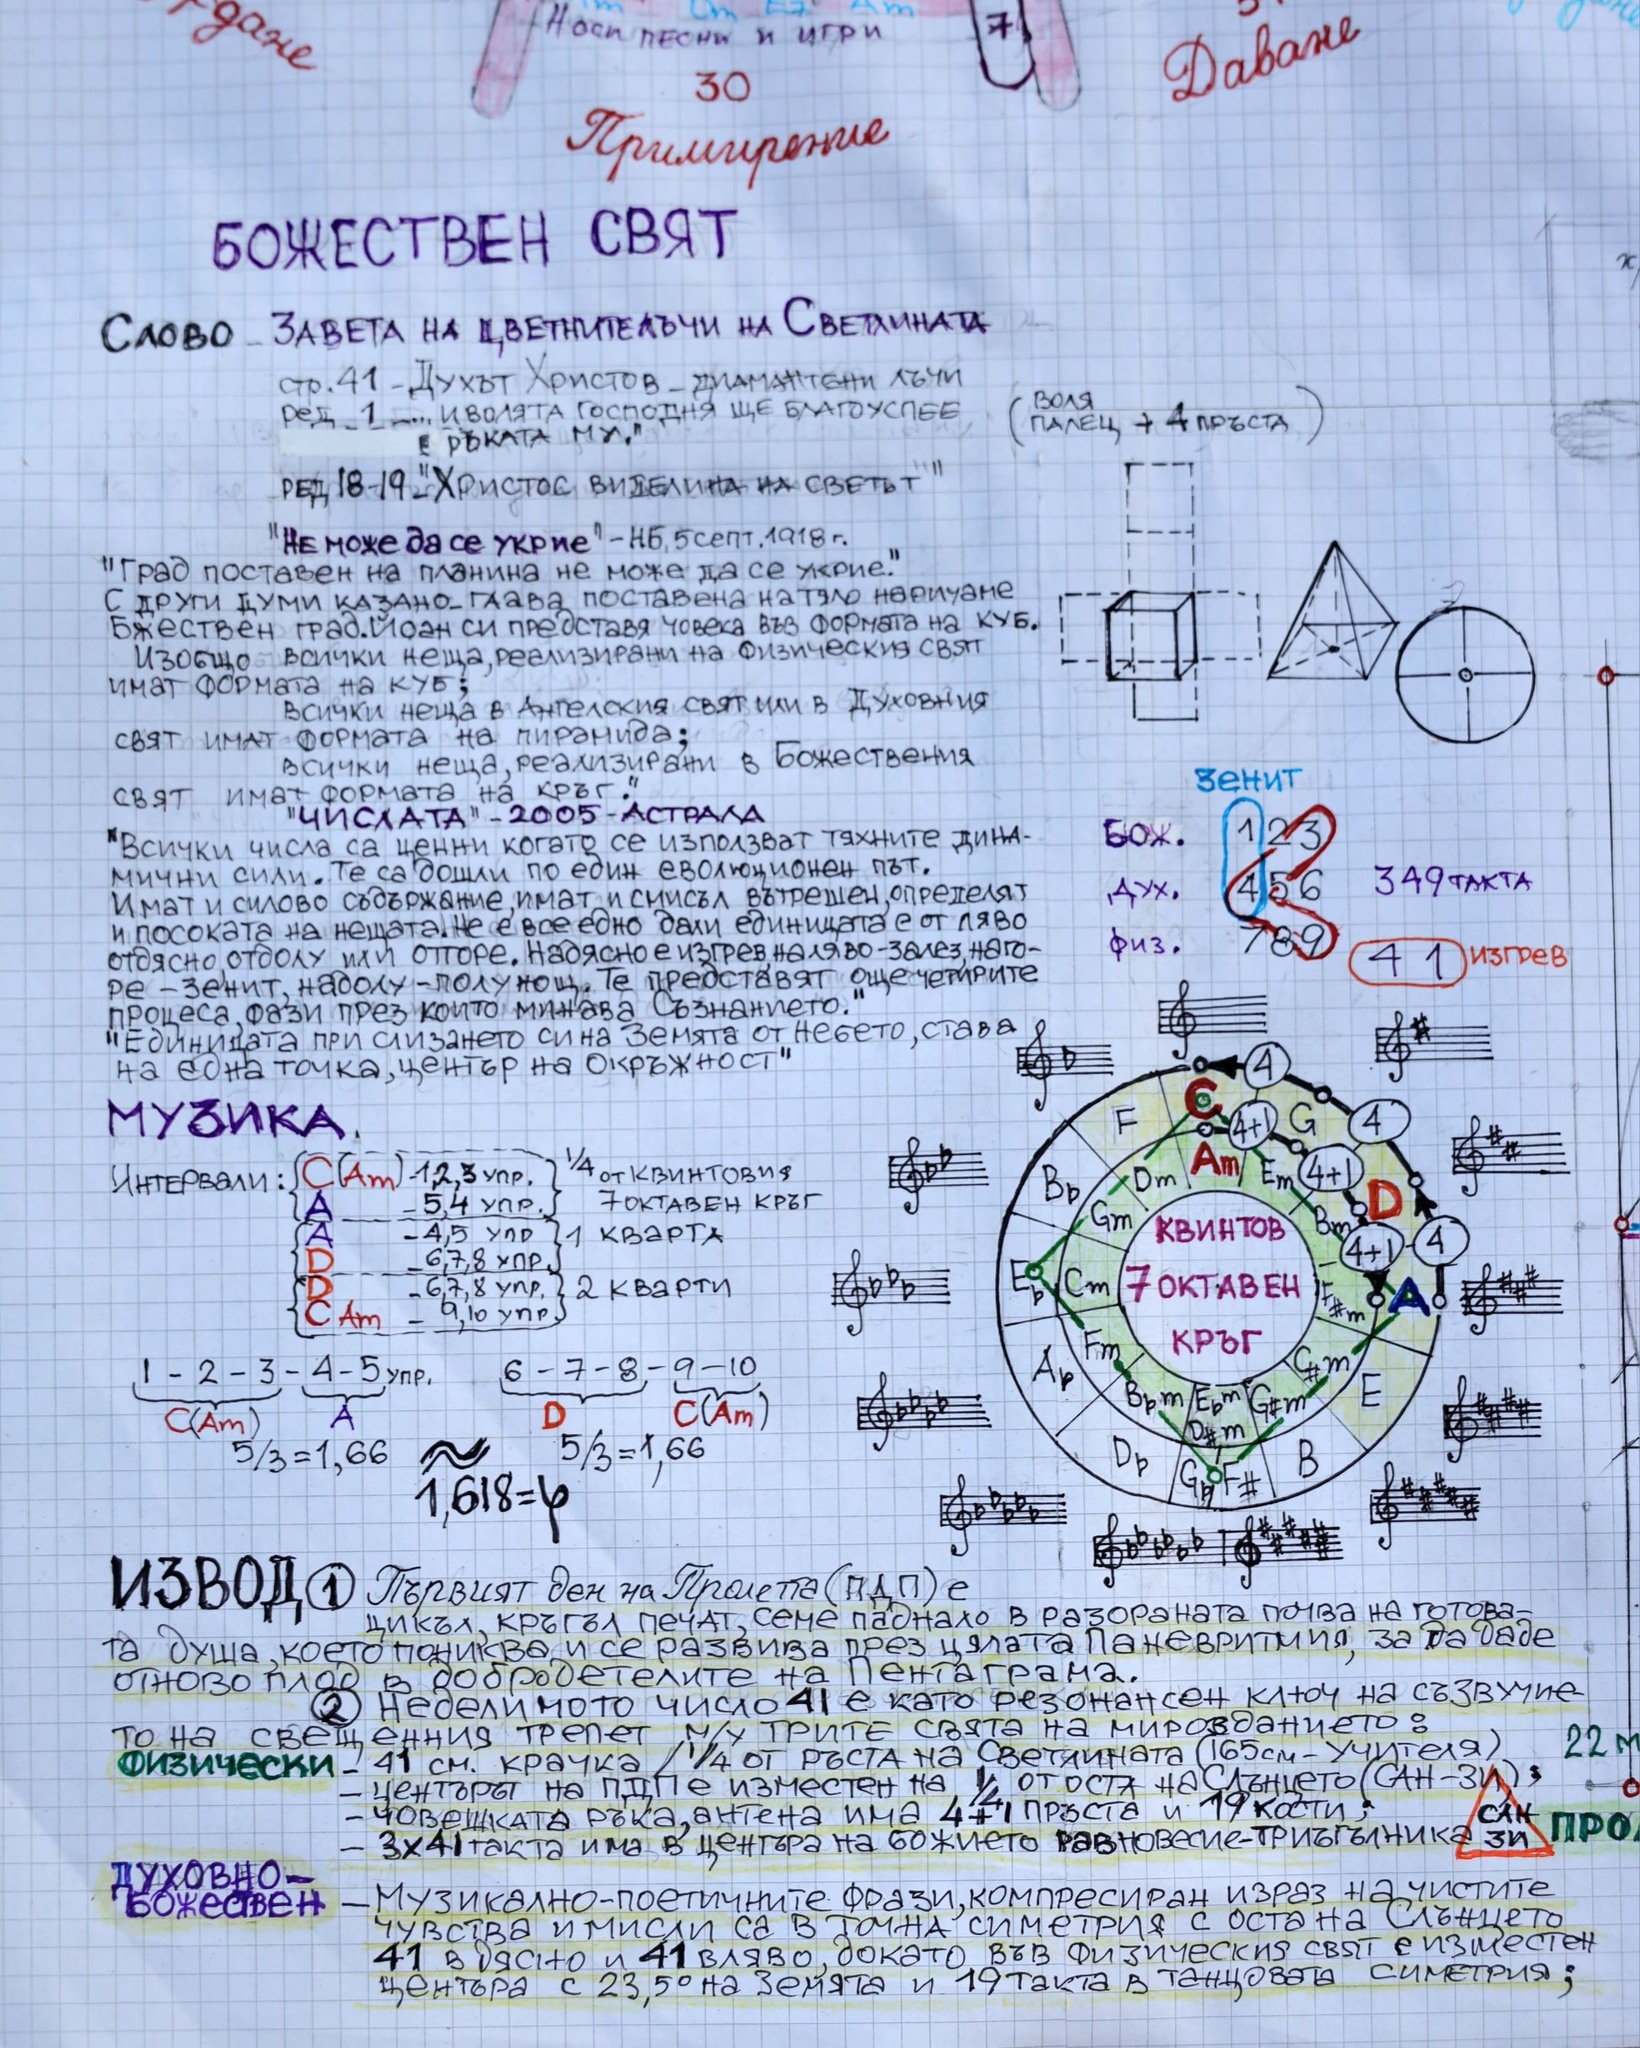 Носи песни и игри
7
30
Примирение
Даване
БОЖЕСТВЕН СВЯТ
Слово - ЗАВЕТА НА ЦВЕТНИТЕ ЛЪЧИ НА СВЕТЛИНАТА
стр. 41 - Духът Христов - диамантени лъчи
ред 1 - ... и волята господня ще благоуспее
в ръката му."
(воля
палец + 4 пръста)
ред 18-19 - "Христос виделина на светът"
"Не може да се укрие" - НБ, 5 септ. 1918 г.
"Град поставен на планина не може да се укрие."
С други думи казано - глава поставена на тяло наричаме
Бжествен град. Йоан си представя човека във формата на КУБ.
Изобщо всички неща, реализирани на Физическия свят
имат формата на КУБ;
всички неща в Ангелския свят или в Духовния
свят имат формата на пирамида;
всички неща, реализирани в Божествения
свят имат формата на кръг."
"ЧИСЛАТА" - 2005 - АСТРАЛА
"Всички числа са ценни когато се използват техните дина-
мични сили. Те са дошли по един еволюционен път.
Имат и силово съдържание, имат и смисъл вътрешен, определят
и посоката на нещата. Не е все едно дали единицата е от ляво
отдясно, отдолу или отгоре. Надясно е изгрев, наляво - залез, наго-
ре - зенит, надолу - полунощ. Те представят още четирите
процеса, фази през които минава Съзнанието."
"Единицата при слизането си на Земята от небето, става
на една точка, център на окръжност"
зенит
Бож. 123
Дух. 456
физ. 789
349 такта
41 изгрев
МУЗИКА.
Интервали: C(Am) - 1,2,3 упр.
A - 5,4 упр.
1/4 от квинтовия
7 октавен кръг
A - 4,5 упр
D - 6,7,8 упр.
1 кварта
D - 6,7,8 упр.
C Am - 9,10 упр.
2 кварти
1 - 2 - 3 - 4 - 5 упр.
C(Am) A
5/3 = 1,66
6 - 7 - 8 - 9 - 10
D C(Am)
5/3 = 1,66
≈
1,618 = φ
4
C
4+1
G
4
F
Am
Em
4+1
D
Dm
Bb
Gm
Bm
4+1
4
Eb
Cm
КВИНТОВ
7 ОКТАВЕН
КРЪГ
F#m
A
Fm
C#m
Ab
E
Bbm
Ebm
D#m
G#m
Db
Gb F#
B
ИЗВОД ① Първият ден на Пролетта (ПДП) е
цикъл, кръгъл печат, семе паднало в разораната почва на готова-
та душа, което пониква и се развива през цялата Паневритмия, за да даде
отново плод в добродетелите на Пентаграма.
② Неделимото число 41 е като резонансен ключ на съзвучие-
то на свещенния трепет м/у трите свята на мирозданието:
Физически - 41 см. крачка / 1/4 от ръста на Светлината (165 см - Учителя)
- центърът на ПДП е изместен на 1/4 от остя на Слънцето (САН-ЗИ);
- човешката ръка, антена има 4+1 пръста и 19 кости;
- 3x41 такта има в центъра на божието равновесие - триъгълника
САН
ЗИ
22 м
ДУХОВНО-
Божествен - Музикално-поетичните фрази, компресиран израз на чистите
чувства и мисли са в точна симетрия с оста на Слънцето
41 в дясно и 41 вляво, докато във Физическия свят е изместен
центъра с 23,5° на Земята и 19 такта в танцовата симетрия;